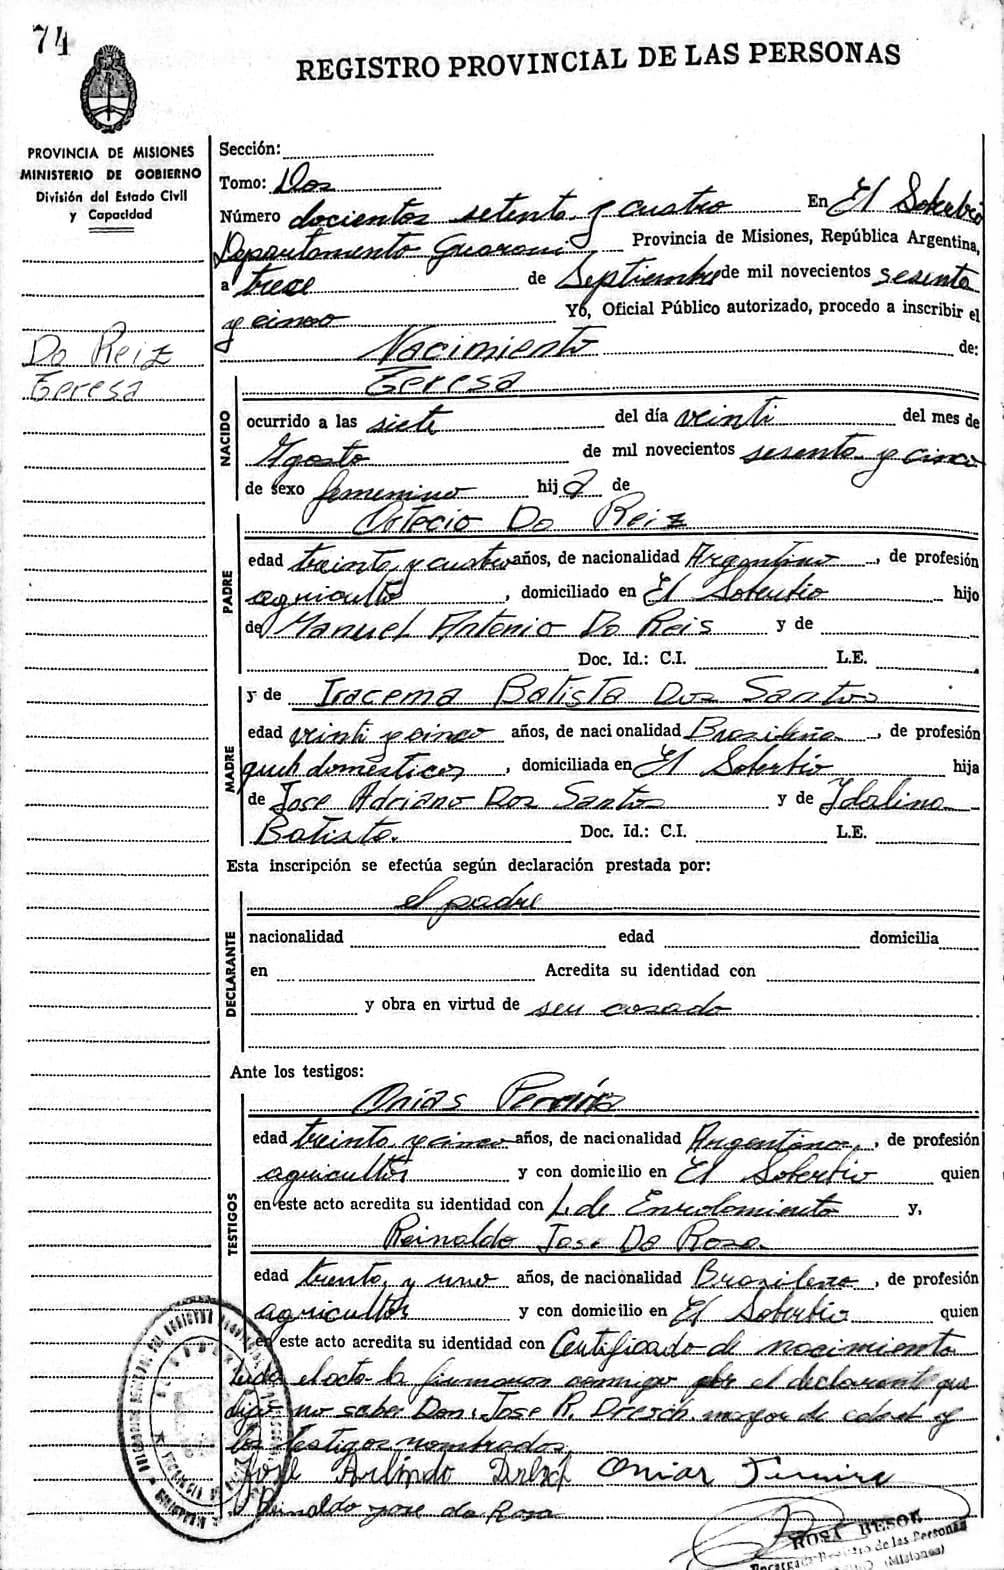 74
REGISTRO PROVINCIAL DE LAS PERSONAS
PROVINCIA DE MISIONES
MINISTERIO DE GOBIERNO
División del Estado Civil
y Capacidad
Do Reiz
Teresa
Sección:
Tomo: Dos
Número docientos setenta y cuatro En El Soberbio
Departamento Guarani Provincia de Misiones, República Argentina,
a trece de Septiembre de mil novecientos sesenta
y cinco Yo, Oficial Público autorizado, procedo a inscribir el
Nacimiento de:
NACIDO
Teresa
ocurrido a las siete del día veinti del mes de
Agosto de mil novecientos sesenta y cinco
de sexo femenino hija de
PADRE
Do Reiz
edad treinta y cuatro años, de nacionalidad Argentino, de profesión
agricultor, domiciliado en El Soberbio hijo
de Manuel Antonio Do Reis y de
Doc. Id.: C.I. L.E.
MADRE
y de Iracema Batista Dos Santos
edad veinti y cinco años, de nacionalidad Brasileña, de profesión
queh domésticos, domiciliada en El Soberbio hija
de Jose Adriano Dos Santos y de Idalina
Batista. Doc. Id.: C.I. L.E.
Esta inscripción se efectúa según declaración prestada por:
DECLARANTE
el padre
nacionalidad edad domicilia
en Acredita su identidad con
y obra en virtud de ser casado
Ante los testigos:
TESTIGOS
Onias
edad treinta y cinco años, de nacionalidad Argentino, de profesión
agricultor y con domicilio en El Soberbio quien
en este acto acredita su identidad con L. de Enrolamiento y,
Reinaldo Jose Da Rosa
edad trenta y uno años, de nacionalidad Brasileno, de profesión
agricultor y con domicilio en El Soberbio quien
en este acto acredita su identidad con Certificado de nacimiento
leida el acta la firmaron conmigo por el declarante que
dijo no saber Don. Jose R. Dresch mayor de edad y
los testigos nombrados.
José Arlindo
Reinaldo jose da Rosa
ROSA BESOK
Registro de las Personas
(Misiones)